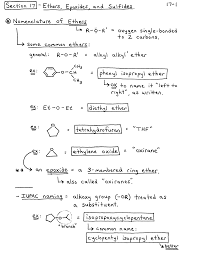 Section 17 - Ethers, Epoxides, and Sulfides 17-1
Nomenclature of Ethers
R-O-R' = oxygen single-bonded
to 2 carbons.
some common ethers:
general: R-O-R' = alkyl alkyl' ether
eg: O-CH CH3 CH3 = phenyl isopropyl ether
OK to name it "left to
right", as written.
eg: Et-O-Et = diethyl ether
eg: O = tetrahydrofuran = "THF"
eg: O = ethylene oxide = "oxirane"
an epoxide = a 3-membered ring ether
also called "oxiranes".
- IUPAC naming: alkoxy group (-OR) treated as
a substituent.
eg: = isopropoxycyclopentane
common name:
cyclopentyl isopropyl ether
better